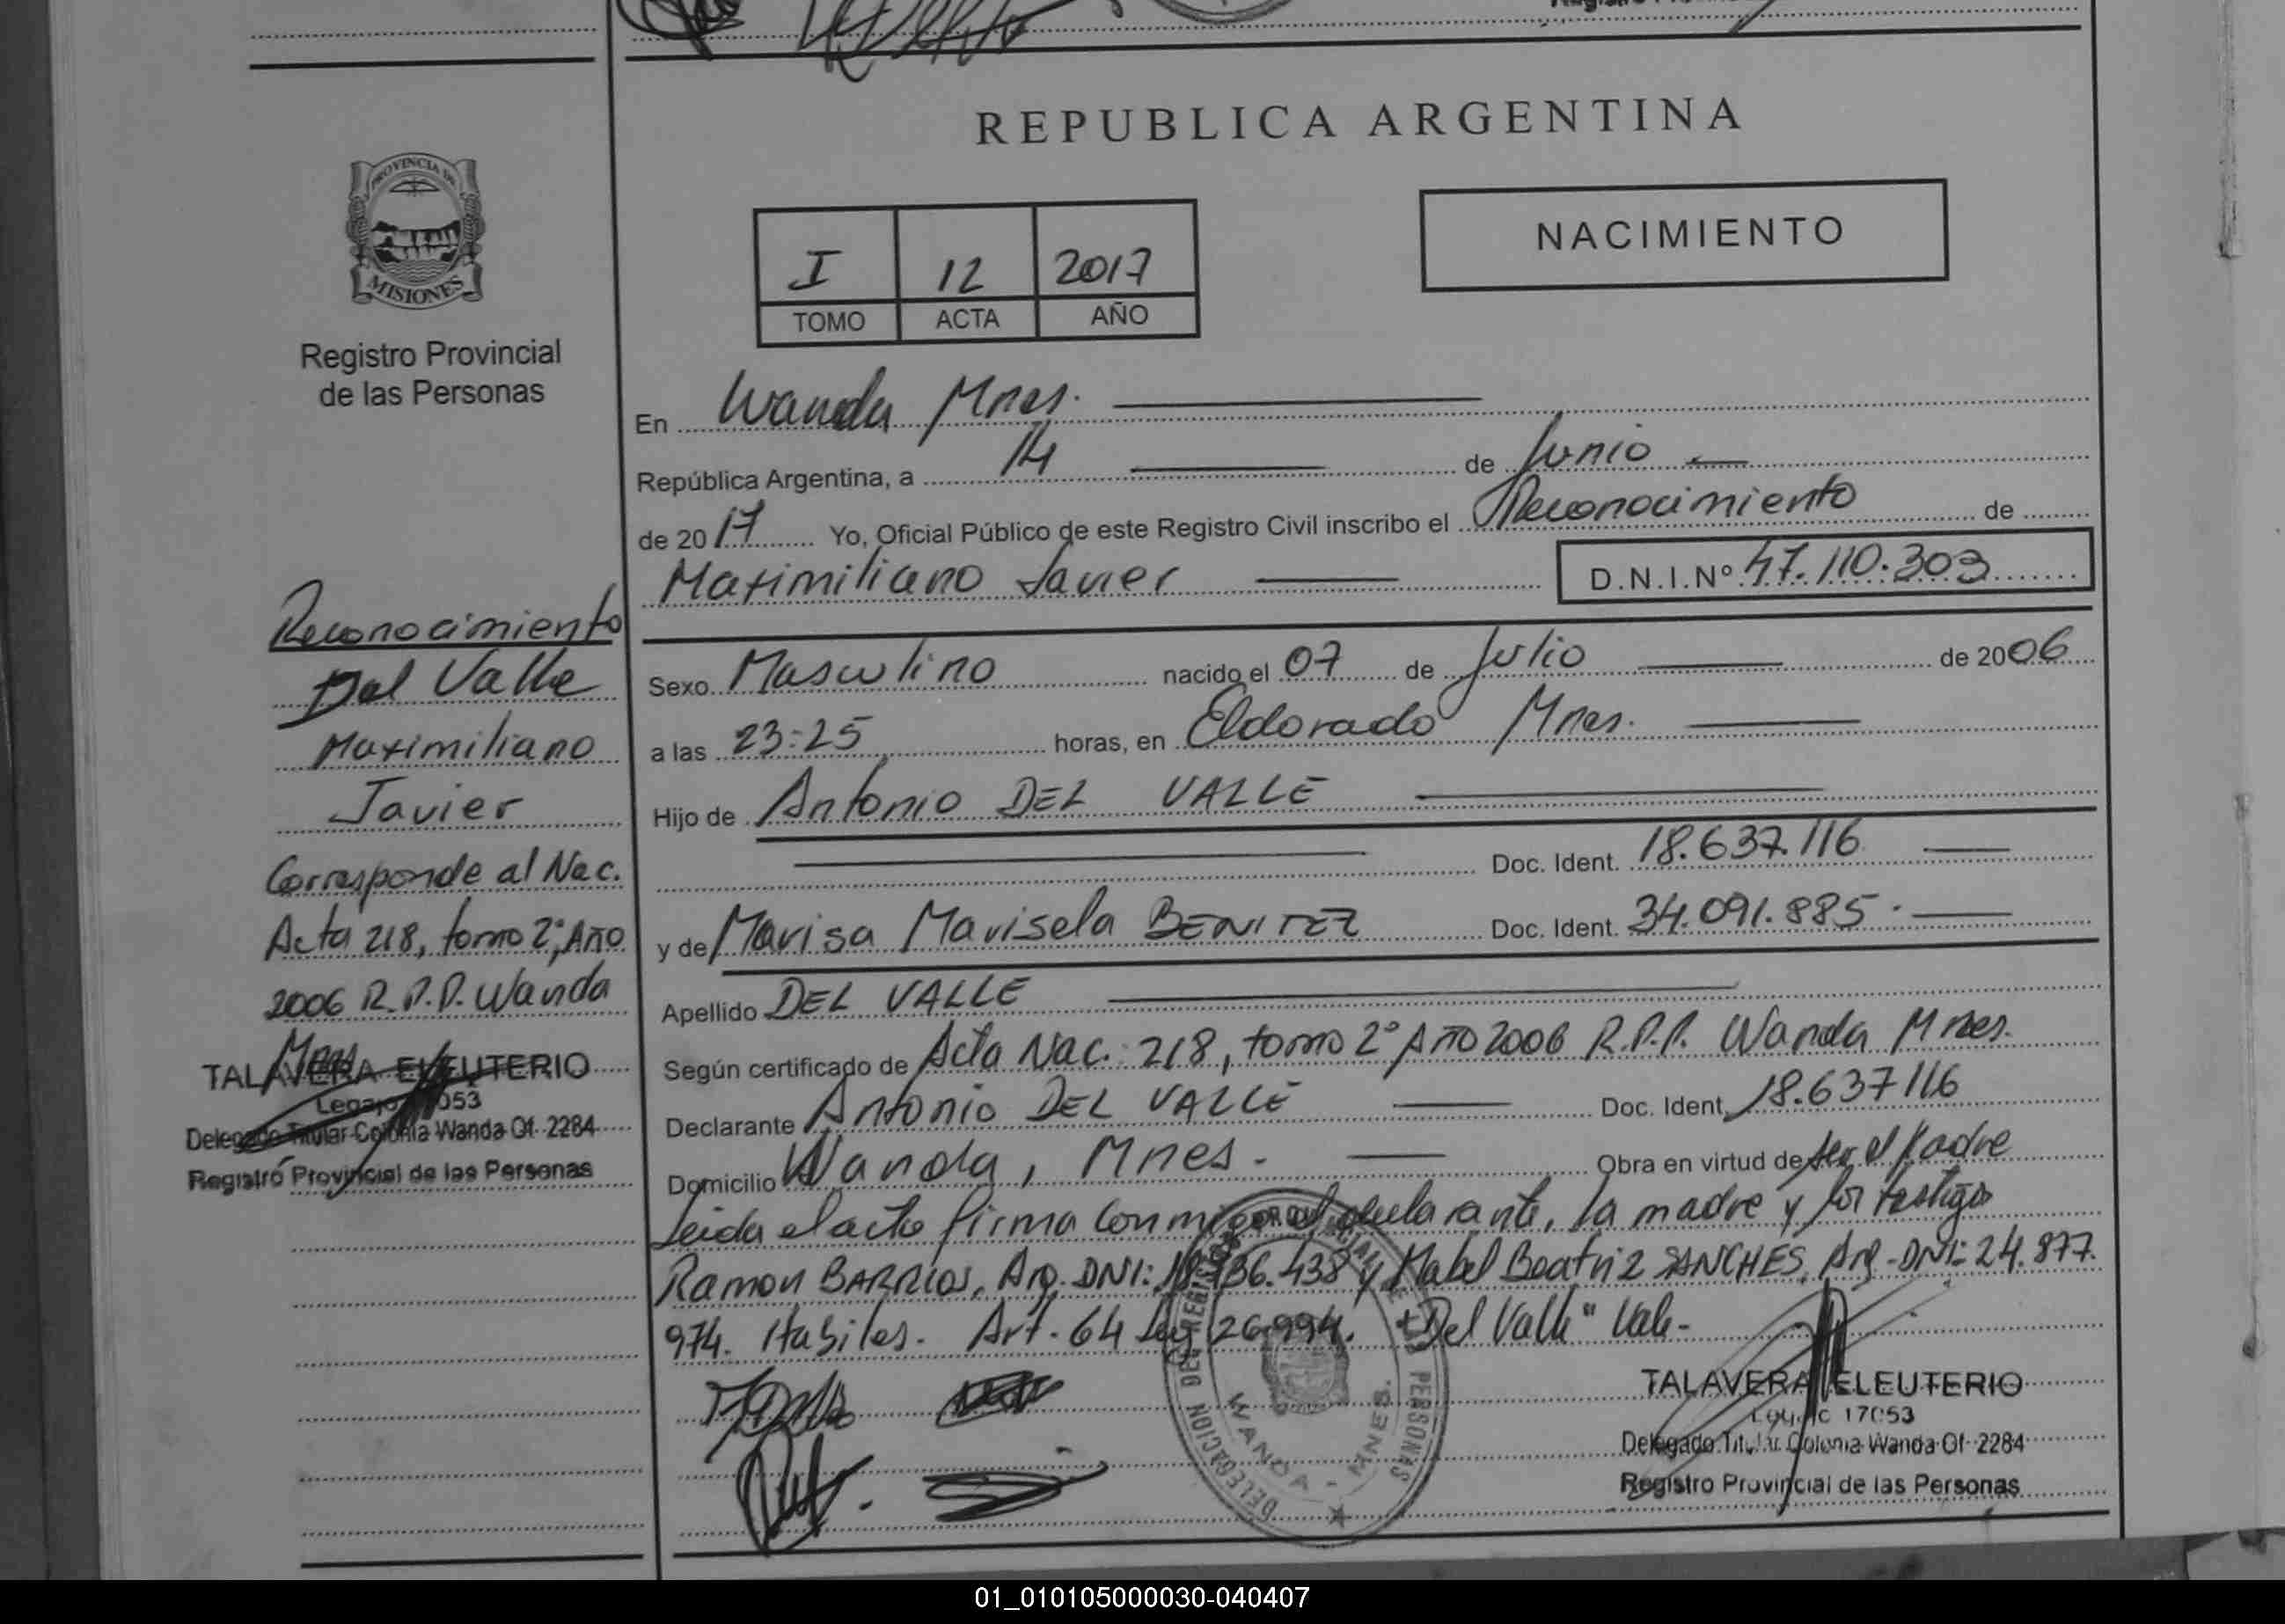 REPUBLICA ARGENTINA
PROVINCIA DE
MISIONES
Registro Provincial
de las Personas
I 12 2017
TOMO ACTA AÑO
NACIMIENTO
En Wanda Mnes.
República Argentina, a 14 de Junio
de 2017 Yo, Oficial Público de este Registro Civil inscribo el Reconocimiento de
Maximiliano Javier D.N.I.Nº 47.110.303
Reconocimiento
Del Valle
Maximiliano
Javier
Corresponde al Nac.
Acta 218, tomo 2º, Año
2006 R.P.P. Wanda
Mnes
TALAVERA ELEUTERIO
Legajo 17053
Delegado Titular Colonia Wanda Of. 2284
Registro Provincial de las Personas
Sexo Masculino nacido el 07 de Julio de 2006
a las 23:25 horas, en Eldorado Mnes.
Hijo de Antonio DEL VALLE
Doc. Ident. 18.637.116
y de Marisa Marisela BENITEZ Doc. Ident. 34.091.885.
Apellido DEL VALLE
Según certificado de Acta Nac. 218, tomo 2º Año 2006 R.P.P. Wanda Mnes.
Declarante Antonio DEL VALLE Doc. Ident. 18.637116
Domicilio Wanda, Mnes. Obra en virtud de ser el Padre
Leida el acta firma conmigo el declarante, la madre y los testigos
Ramon BARRIOS, Arg. DNI: 436.438 y Mabel Beatriz SANCHES, Arg-DNI: 24.877.
974. Habiles. Art. 64 Ley 26.994. "Del Valle" Vale-
DELEGACION DEL REGISTRO PROVINCIAL DE LAS PERSONAS
WANDA - MNES.
TALAVERA ELEUTERIO
Legajo 17053
Delegado Titular Colonia Wanda Of. 2284
Registro Provincial de las Personas
01_010105000030-040407